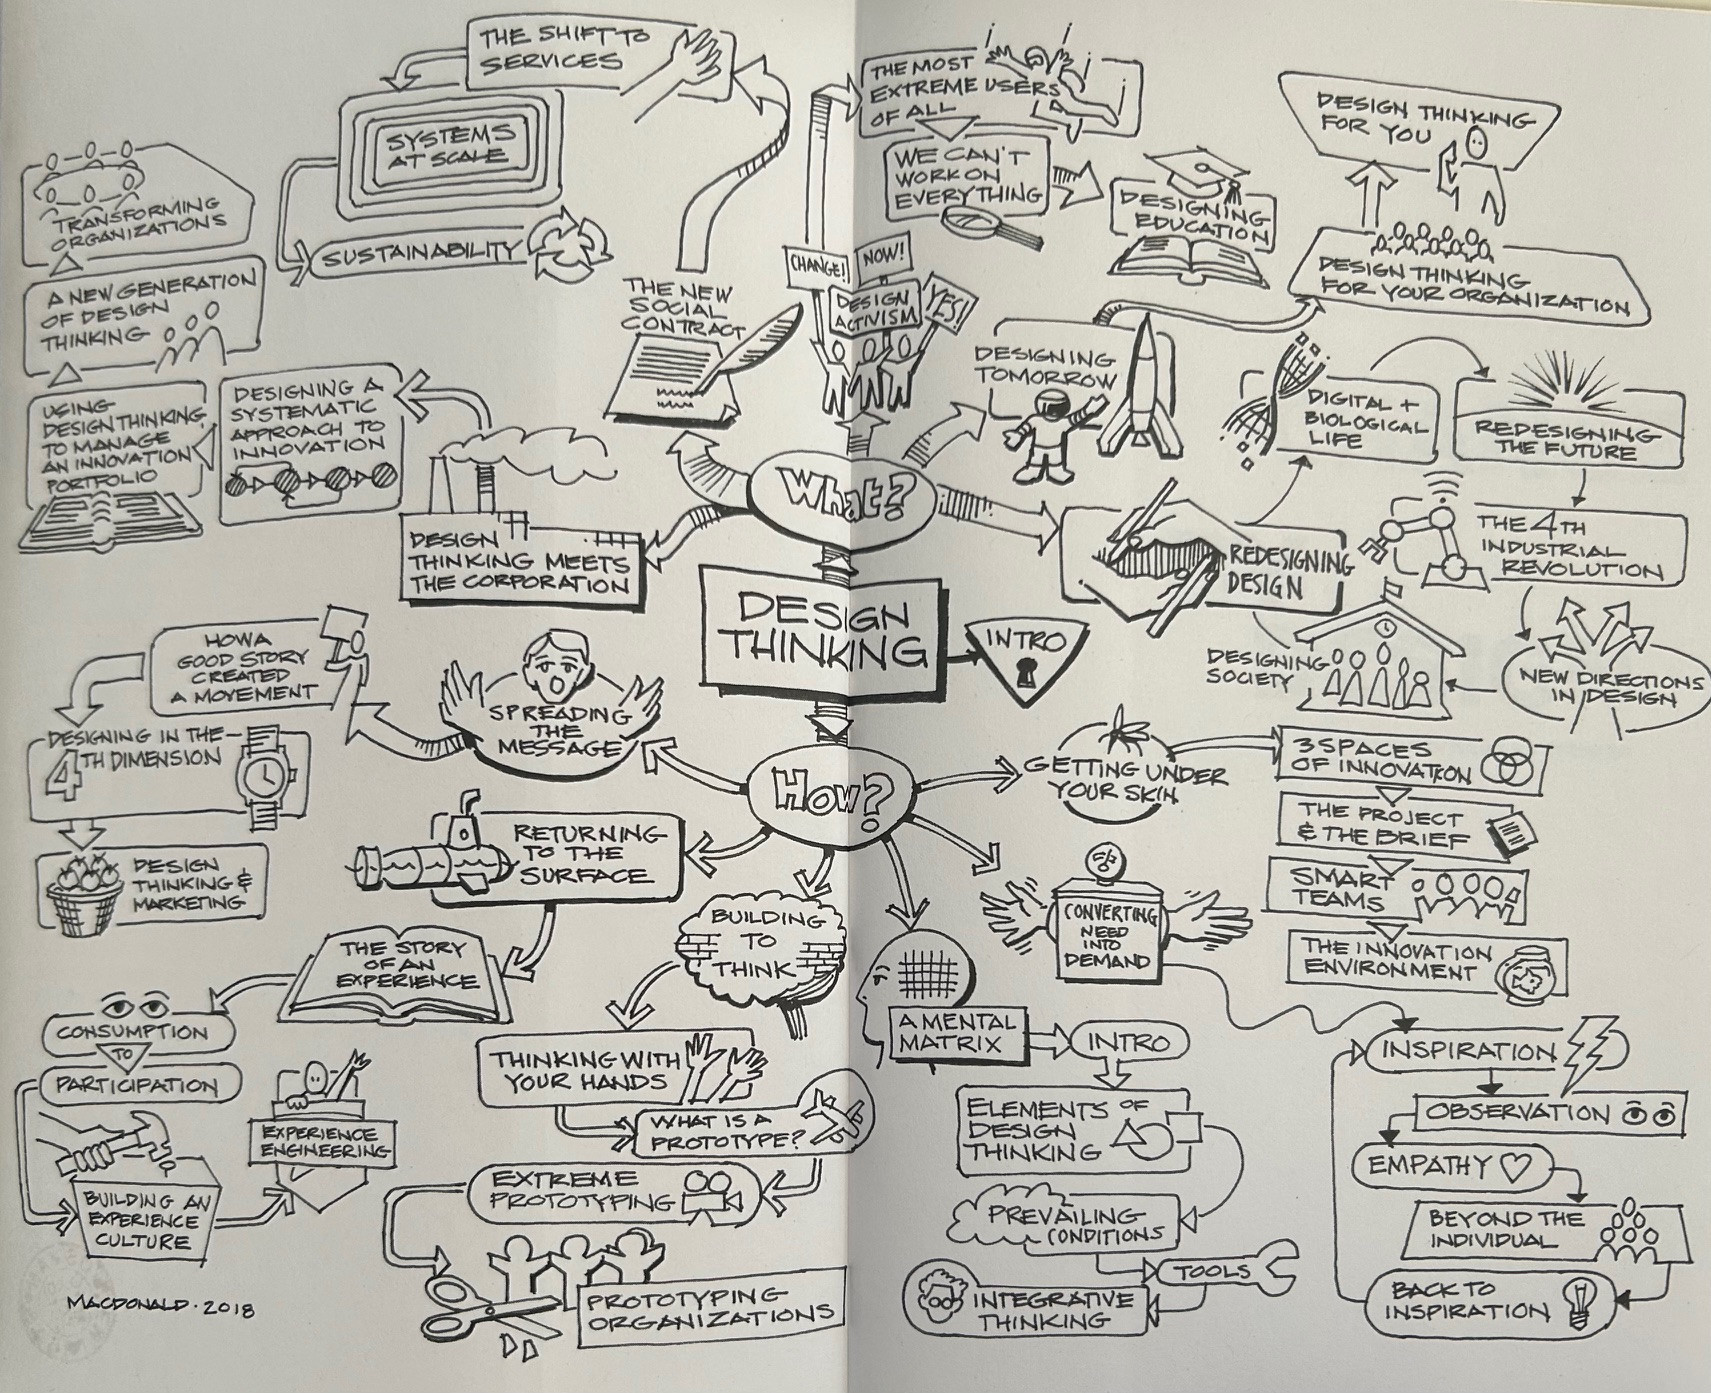 DESIGN
THINKING
INTRO
What?
DESIGN
THINKING MEETS
THE CORPORATION
DESIGNING A
SYSTEMATIC
APPROACH TO
INNOVATION
USING
DESIGN THINKING
TO MANAGE
AN INNOVATION
PORTFOLIO
A NEW GENERATION
OF DESIGN
THINKING
TRANSFORMING
ORGANIZATIONS
THE NEW
SOCIAL
CONTRACT
THE SHIFT TO
SERVICES
SYSTEMS
AT SCALE
SUSTAINABILITY
CHANGE!
NOW!
DESIGN
ACTIVISM
YES!
THE MOST
EXTREME USERS
OF ALL
WE CAN'T
WORK ON
EVERYTHING
DESIGNING
EDUCATION
DESIGNING
TOMORROW
DESIGN THINKING
FOR YOUR ORGANIZATION
DESIGN THINKING
FOR YOU
REDESIGNING
DESIGN
DIGITAL +
BIOLOGICAL
LIFE
REDESIGNING
THE FUTURE
THE 4TH
INDUSTRIAL
REVOLUTION
NEW DIRECTIONS
IN DESIGN
DESIGNING
SOCIETY
How?
GETTING UNDER
YOUR SKIN
3 SPACES
OF INNOVATION
THE PROJECT
& THE BRIEF
SMART
TEAMS
THE INNOVATION
ENVIRONMENT
CONVERTING
NEED
INTO
DEMAND
INSPIRATION
OBSERVATION
EMPATHY
BEYOND THE
INDIVIDUAL
BACK TO
INSPIRATION
A MENTAL
MATRIX
INTRO
ELEMENTS OF
DESIGN
THINKING
PREVAILING
CONDITIONS
TOOLS
INTEGRATIVE
THINKING
BUILDING
TO
THINK
THINKING WITH
YOUR HANDS
WHAT IS A
PROTOTYPE?
EXTREME
PROTOTYPING
PROTOTYPING
ORGANIZATIONS
RETURNING
TO THE
SURFACE
THE STORY
OF AN
EXPERIENCE
CONSUMPTION
TO
PARTICIPATION
BUILDING AN
EXPERIENCE
CULTURE
EXPERIENCE
ENGINEERING
SPREADING
THE
MESSAGE
HOW A
GOOD STORY
CREATED
A MOVEMENT
DESIGNING IN THE
4TH DIMENSION
DESIGN
THINKING &
MARKETING
MACDONALD · 2018